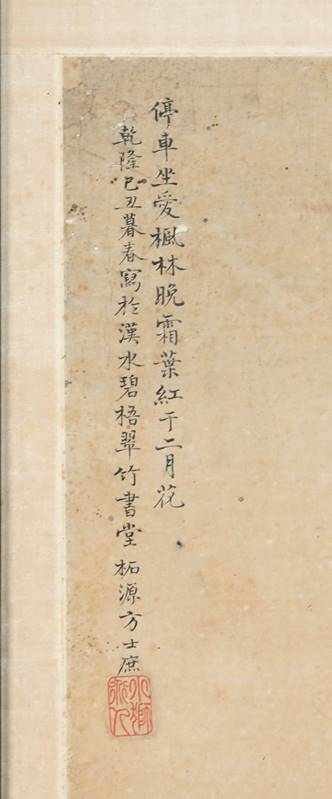 停車坐愛楓林晚霜葉紅于二月花
乾隆己丑暮春寫於漢水碧梧翠竹書堂柘源方士庶